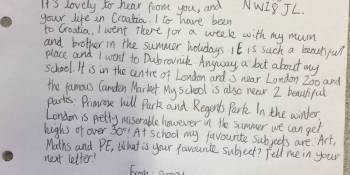 It's lovely to hear from you, and NW1 8JL.
your life in Croatia. I to have been
to Croatia. I went there for a week with my mum
and brother in the summer holidays it is such a beautiful
place and I went to Dubrovnik. Anyway a bit about my
school. It is in the centre of London and is near London Zoo and
the famous Camden Market. My School is also near 2 beautiful
parks. Primrose hill Park and Regents Park. In the winter,
London is pretty miserable however in the summer we can get
highs of over 30°! At school my favourite subjects are: Art,
Maths and PE, What is your favourite subject? Tell me in your
next letter!
From: